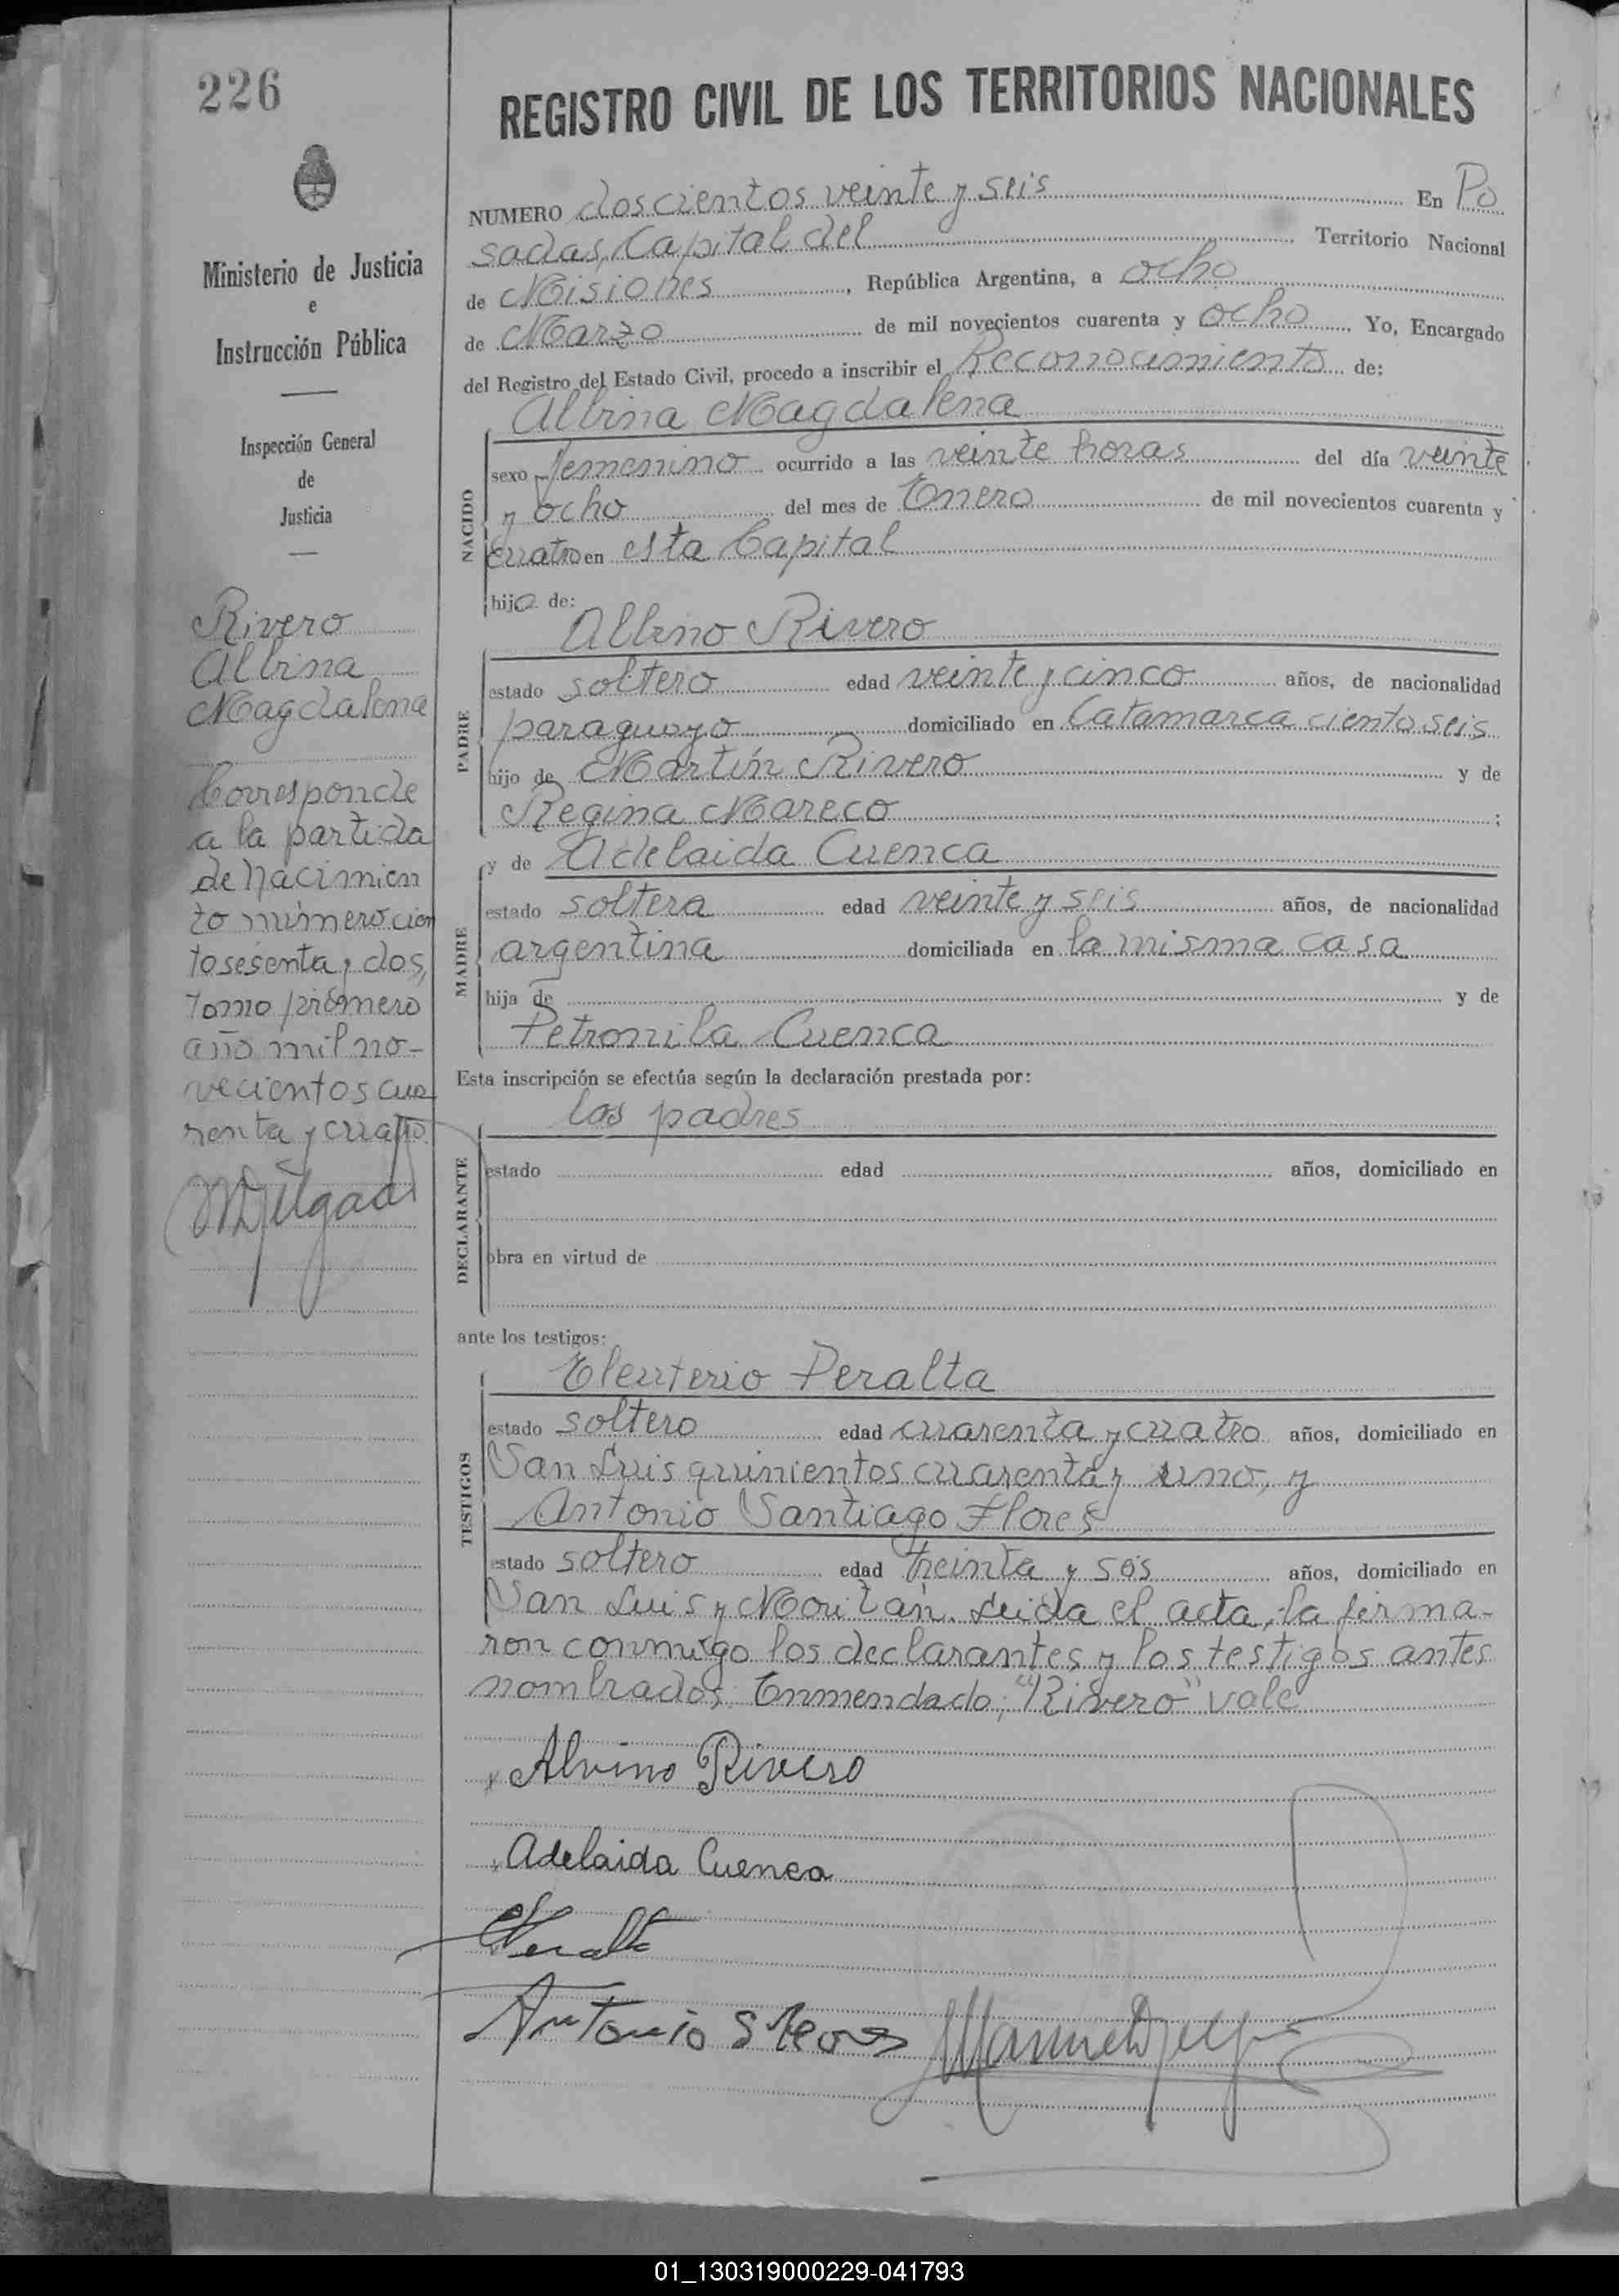 226
Ministerio de Justicia
e
Instrucción Pública
Inspección General
de
Justicia
Rivero
Albina
Magdalena
Corresponde
a la partida
de Nacimien
to número cien
to sesenta y dos,
tomo primero
año mil no-
vecientos cua
renta y cuatro.
REGISTRO CIVIL DE LOS TERRITORIOS NACIONALES
NUMERO doscientos veinte y seis En Po
sadas, Capital del Territorio Nacional
de Misiones, República Argentina, a ocho
de Marzo de mil novecientos cuarenta y ocho Yo, Encargado
del Registro del Estado Civil, procedo a inscribir el Reconocimiento de:
Albina Magdalena
NACIDO
sexo femenino ocurrido a las veinte horas del día veinte
y ocho del mes de Enero de mil novecientos cuarenta y
cuatro en esta Capital
hija de:
Albino Rivero
PADRE
estado soltero edad veinte y cinco años, de nacionalidad
paraguayo domiciliado en Catamarca ciento seis
hijo de Martín Rivero y de
Regina Mareco ;
y de Adelaida Cuenca
MADRE
estado soltera edad veinte y seis años, de nacionalidad
argentina domiciliada en la misma casa
hija de y de
Petronila Cuenca
Esta inscripción se efectúa según la declaración prestada por:
los padres
DECLARANTE
estado edad años, domiciliado en
obra en virtud de
ante los testigos:
Eleuterio Peralta
TESTIGOS
estado soltero edad cuarenta y cuatro años, domiciliado en
San Luis quinientos cuarenta y uno, y
Antonio Santiago Flores
estado soltero edad treinta y seis años, domiciliado en
San Luis y . Leida el acta, la firma-
ron conmigo los declarantes y los testigos antes
nombrados. Enmendado: "Rivero" vale
Alvino Rivero
Adelaida Cuenca
Peralta
Antonio S Flores
01_130319000229-041793